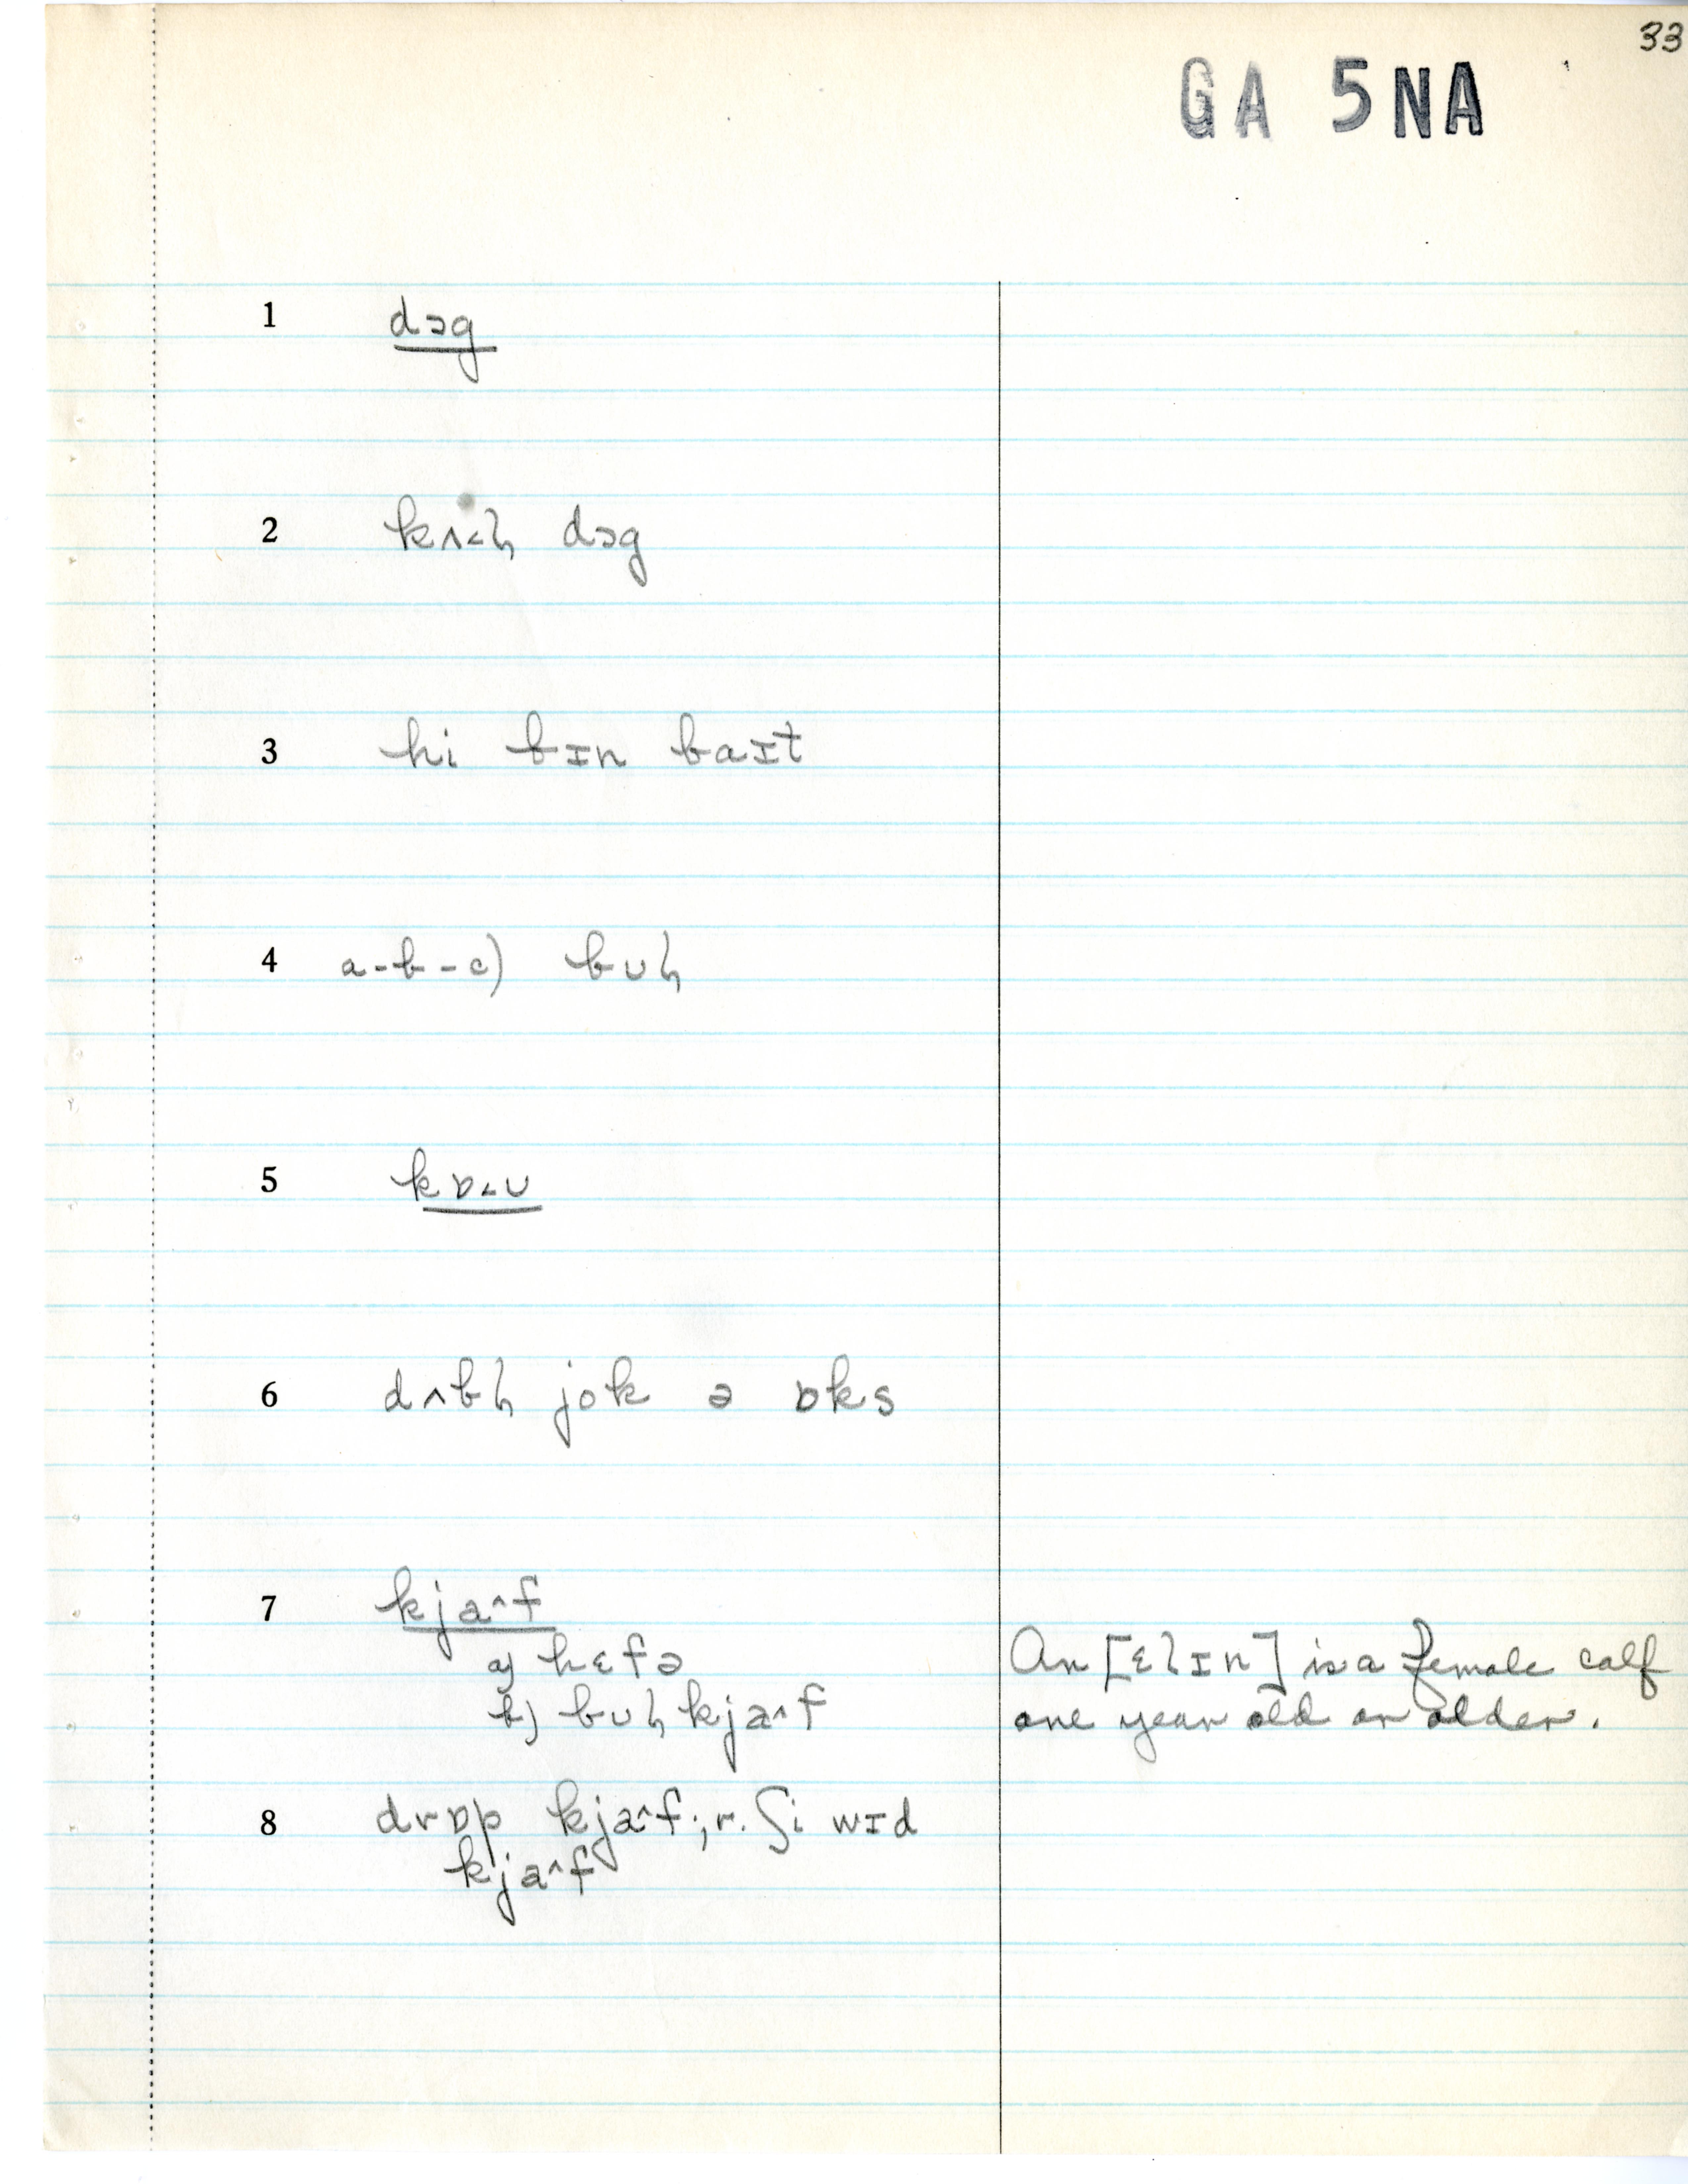 33
GA 5NA
1 dɔg
2 kʌ˂ɫ dɔg
3 hi bɪn baɪt
4 a-b-c) bʊɫ
5 kɒ˂ʊ
6 dʌbɫ jok ə ɒks
7 kja^f
a) hɛfə
b) bʊɫ kja^f
An [ɛlɪn] is a female calf
one year old or older.
8 drɒp kja^f; r. ʃi wɪd
kja^f